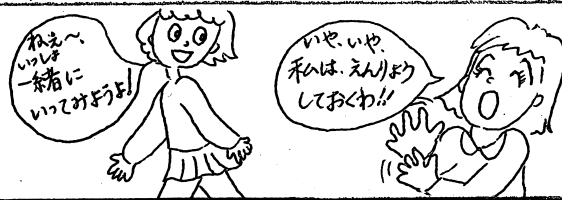 ねぇ〜、
いっしょ
一緒に
いってみようよ!
いや、いや、
私は、えんりょう
しておくわ!!